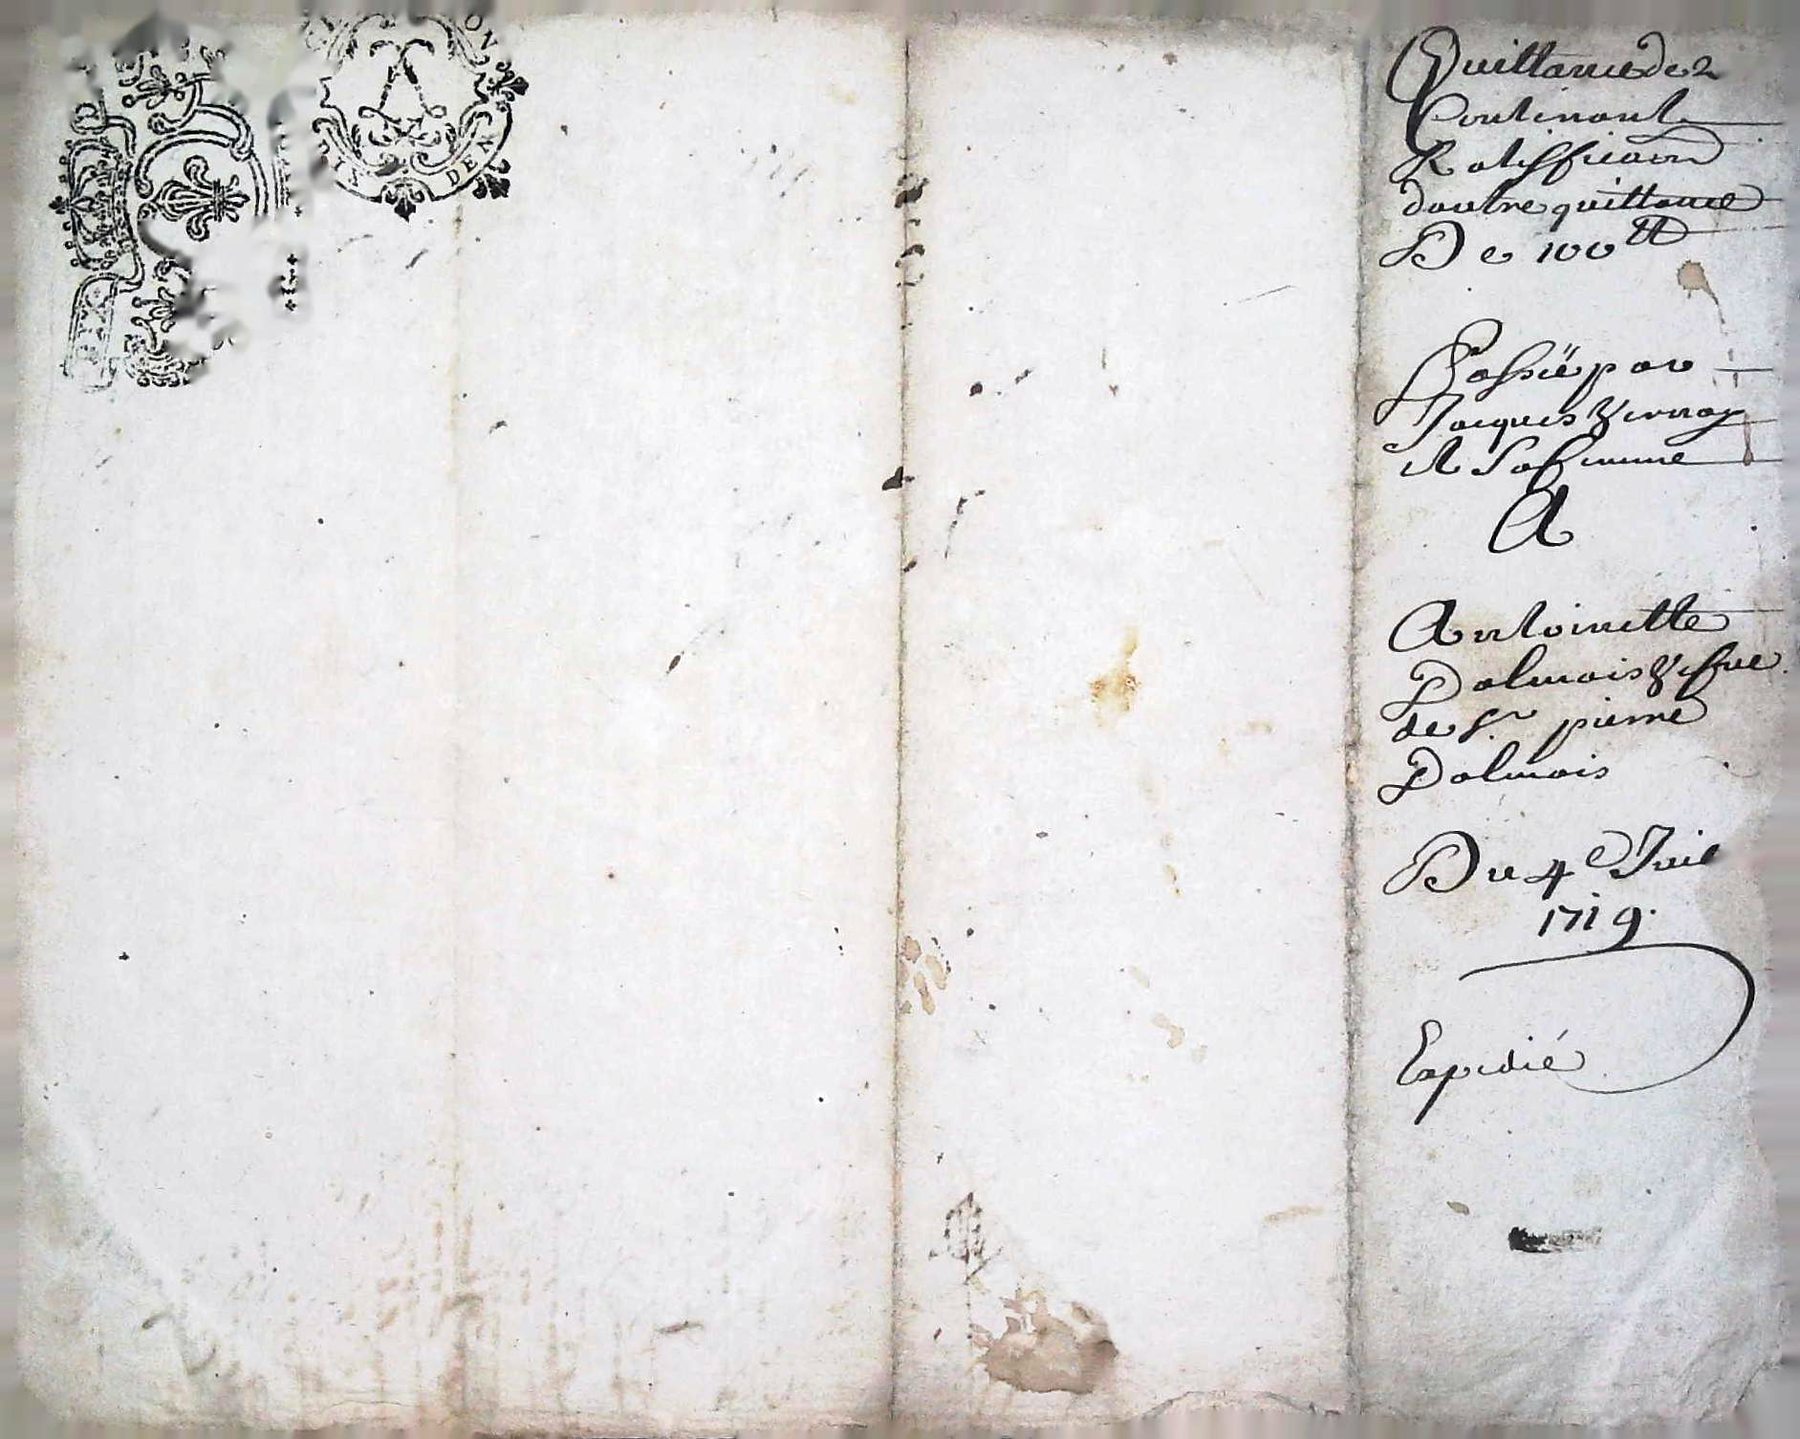 ON
DEN
Quittance de 2
Contenant
Ratiffica̅on
dautre quittance
De 100 tt
Passé par
Jacques Vernay
et Sa femme
A
Antoinette
Dalmais Vefve
de Sr. pierre
Dalmais
Du 4e Juil
1719.
Expedié